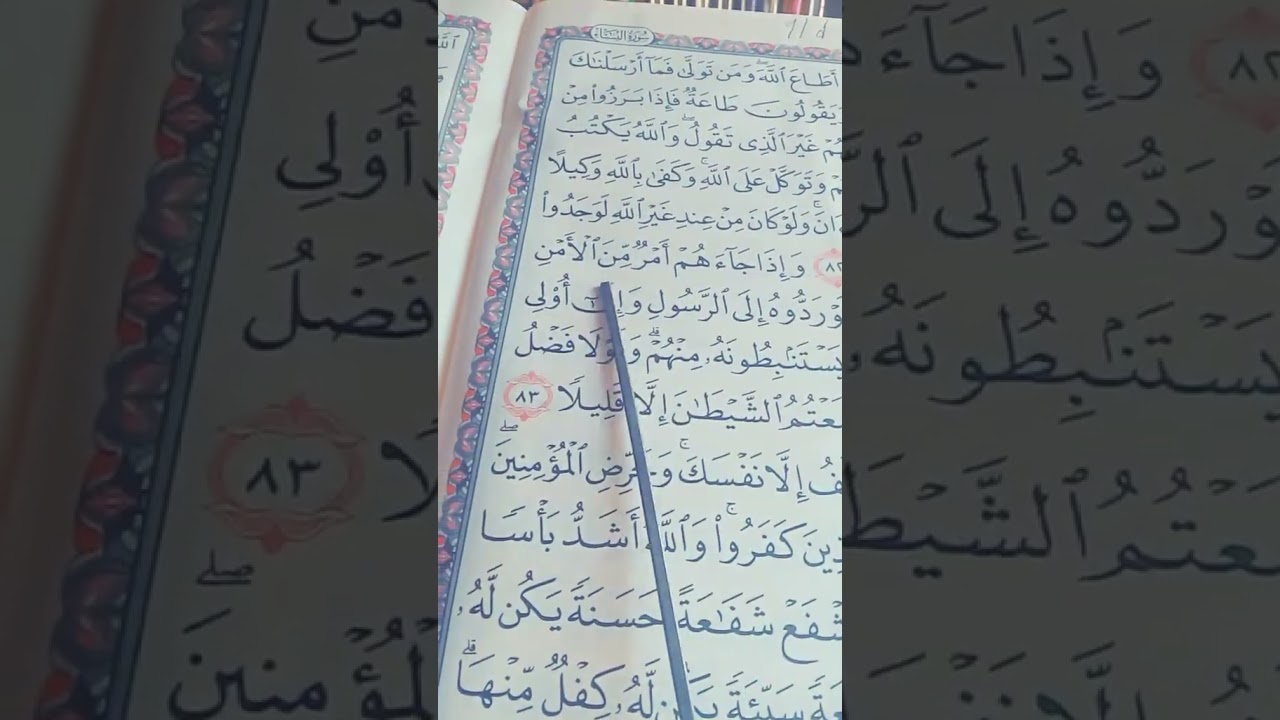 سورة النساء
أطاع ٱللَّهَ وَمَن تَوَلَّىٰ فَمَآ أَرْسَلْنَٰكَ
وَيَقُولُونَ طَاعَةٌ فَإِذَا بَرَزُوا۟ مِنْ
هُمْ غَيْرَ ٱلَّذِى تَقُولُ ۖ وَٱللَّهُ يَكْتُبُ
وَتَوَكَّلْ عَلَى ٱللَّهِ ۚ وَكَفَىٰ بِٱللَّهِ وَكِيلًا
ءَانَ ۚ وَلَوْ كَانَ مِنْ عِندِ غَيْرِ ٱللَّهِ لَوَجَدُوا۟
٨٢ وَإِذَا جَآءَهُمْ أَمْرٌ مِّنَ ٱلْأَمْنِ
وْ رَدُّوهُ إِلَى ٱلرَّسُولِ وَإِلَىٰٓ أُو۟لِى
يَسْتَنۢبِطُونَهُۥ مِنْهُمْ ۗ وَلَوْلَا فَضْلُ
عْتُمُ ٱلشَّيْطَٰنَ إِلَّا قَلِيلًا ٨٣
لَّفُ إِلَّا نَفْسَكَ ۚ وَحَرِّضِ ٱلْمُؤْمِنِينَ ۖ
ذِينَ كَفَرُوا۟ ۚ وَٱللَّهُ أَشَدُّ بَأْسًا
شْفَعْ شَفَٰعَةً حَسَنَةً يَكُن لَّهُۥ
عَةً سَيِّئَةً يَكُن لَّهُۥ كِفْلٌ مِّنْهَا ۗ